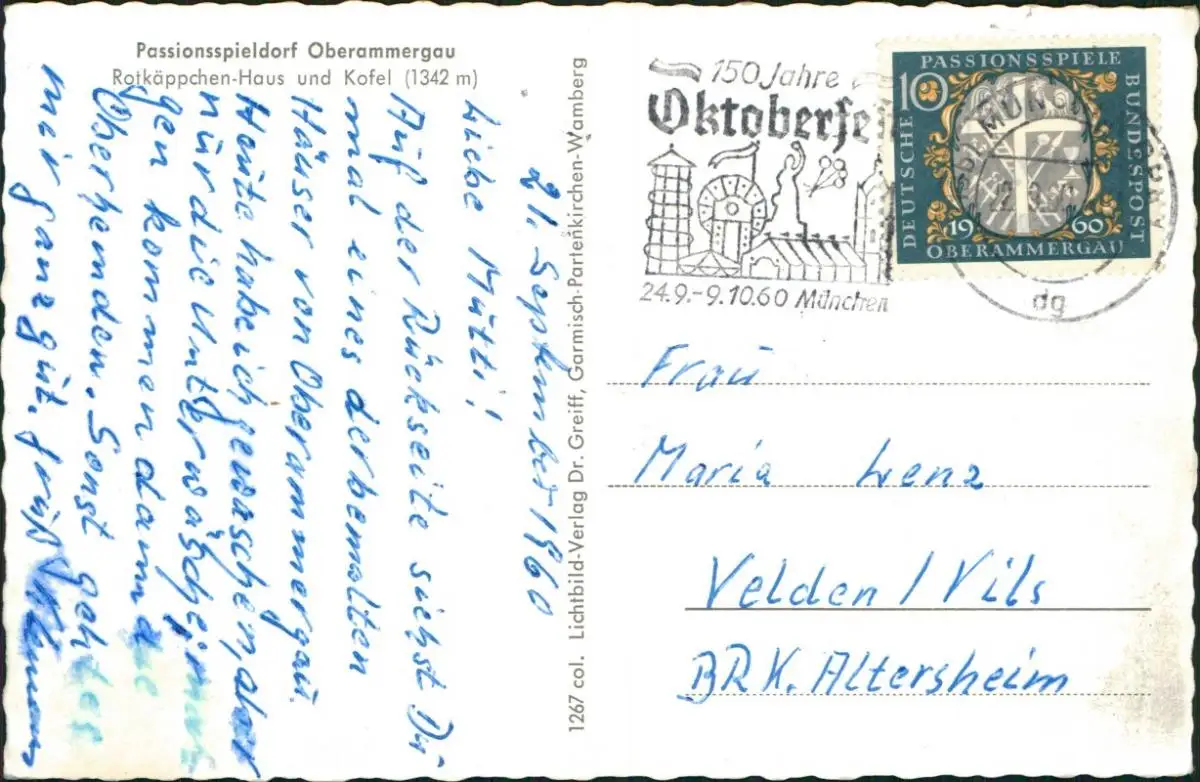 Passionsspieldorf Oberammergau
Rotkäppchen-Haus und Kofel (1342 m)
21. September 1960
Liebe Mutti!
Auf der Rückseite siehst Du
mal eines der bemalten
Häuser von Oberammergau.
Heute habe ich gewaschen, aber
nur die Unterwäsche, mor
gen kommen dann die
Oberhemden. Sonst geht es
mir ganz gut. Gruß
1267 col. Lichtbild-Verlag Dr. Greiff, Garmisch-Partenkirchen-Wamberg
150 Jahre
Oktoberfe
24.9.-9.10.60 München
dg
10
PASSIONSSPIELE
DEUTSCHE
BUNDESPOST
1960
OBERAMMERGAU
Frau
Maria Lenz
Velden / Vils
BRK. Altersheim